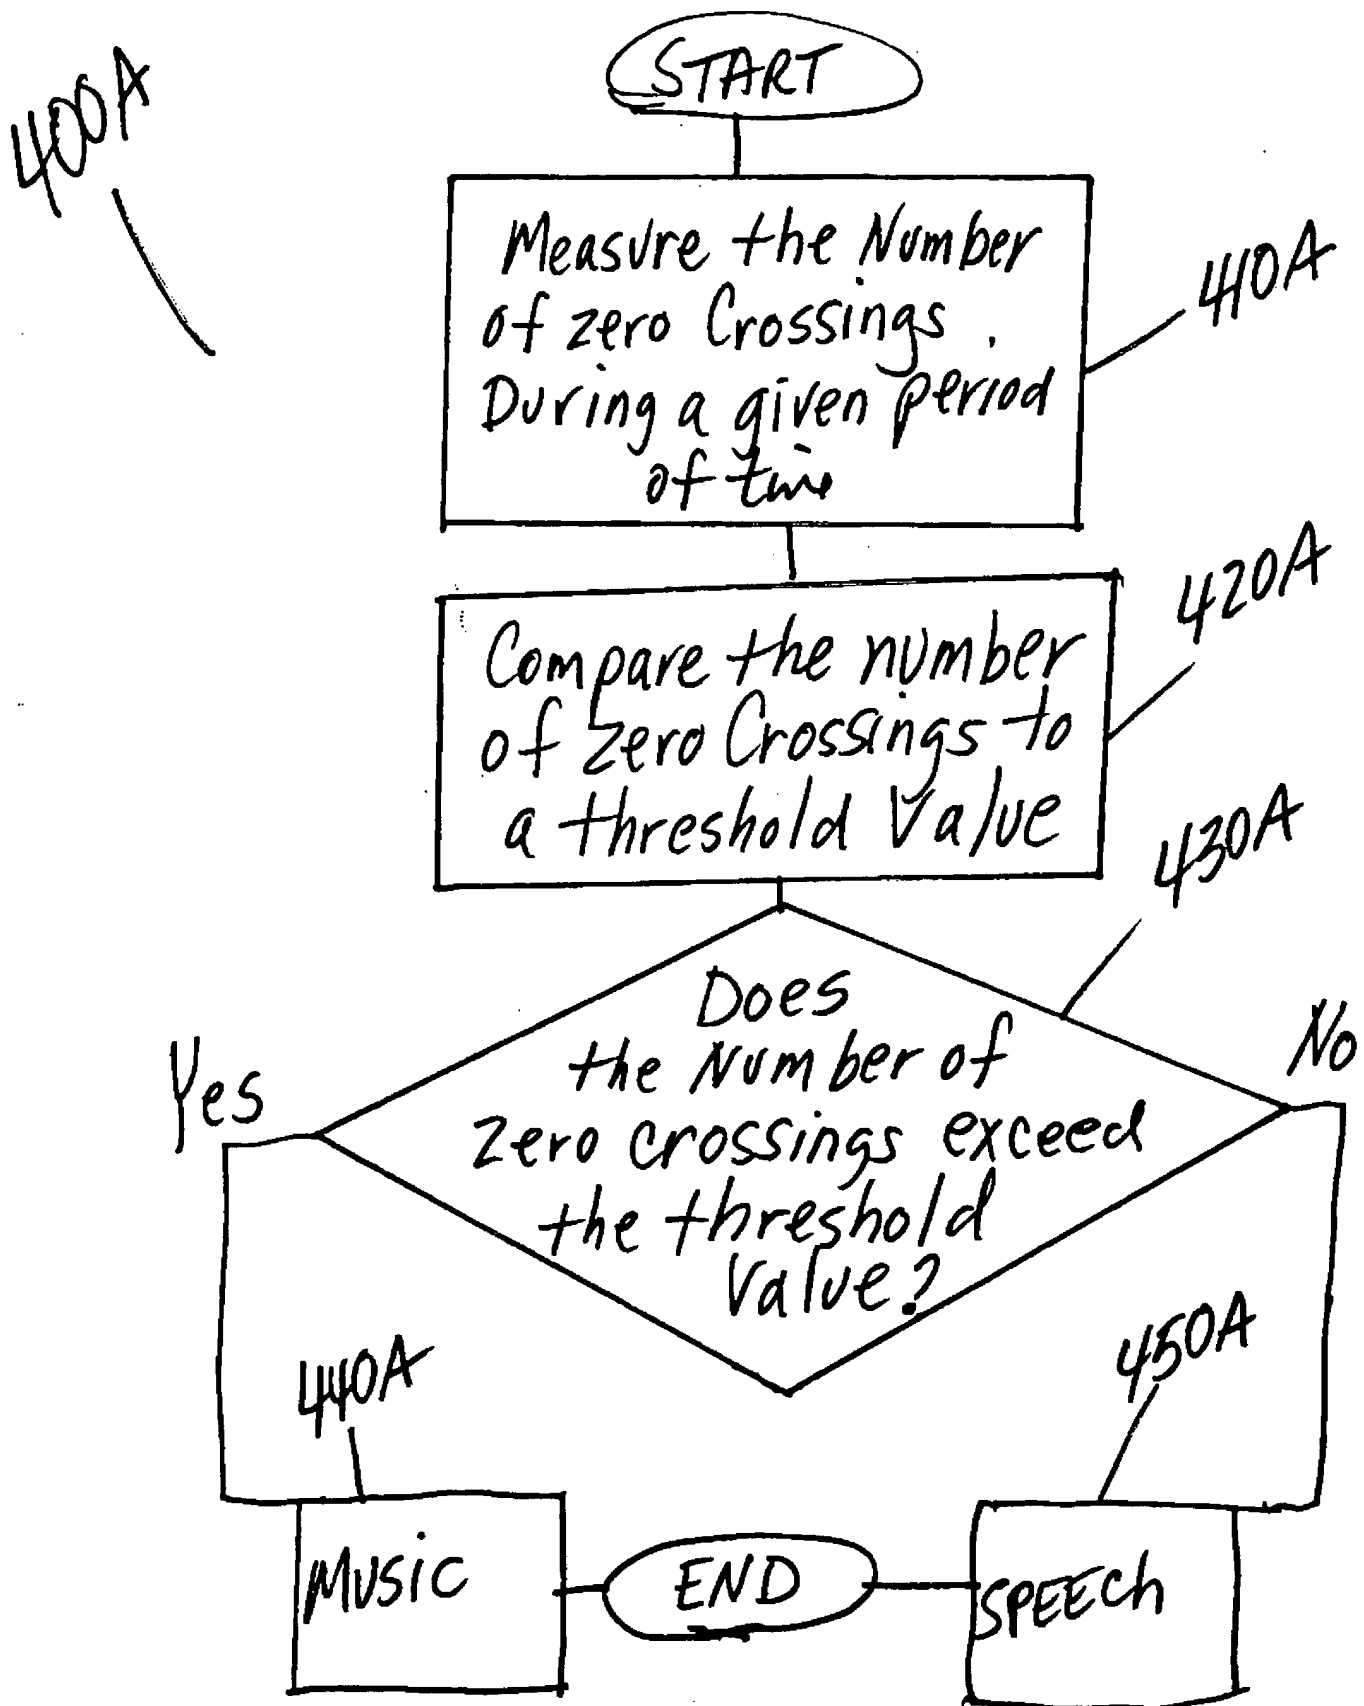 START
400A
Measure the Number
of zero Crossings
During a given period
of time
410A
Compare the number
of zero Crossings to
a threshold Value
420A
430A
Does
the Number of
zero crossings exceed
the threshold
Value?
Yes
No
440A
450A
Music
END
SPEECh